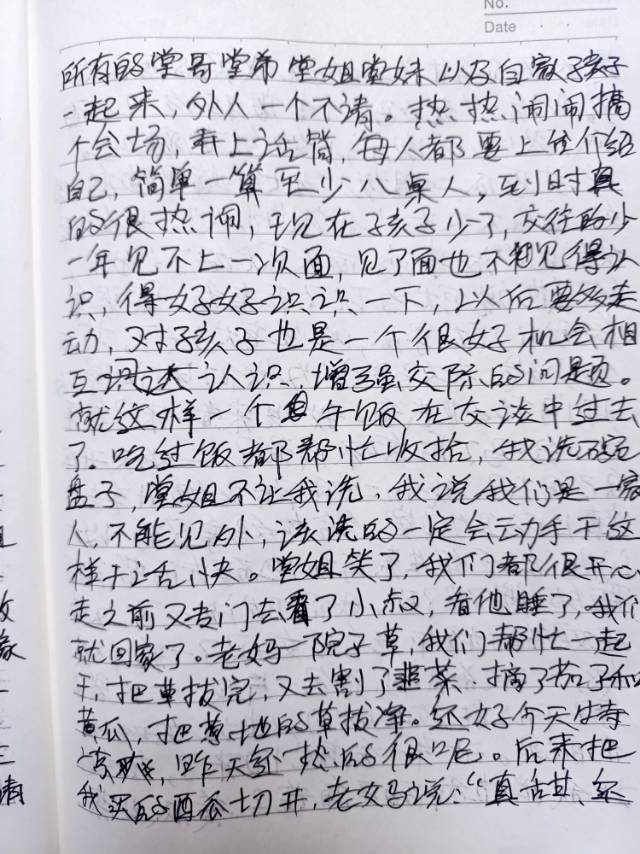 No.
Date
所有的堂哥堂弟堂姐堂妹以及自家孩子
一起来，外人一个不请。热热闹闹搞
个会场，弄上话筒，每人都要上笙介绍
自己，简单一算至少八桌人，到时真
的很热闹，现在子孩子少了，交往的少
一年见不上一次面，见了面也不见得认
识，得好好识识一下，以后要多走
动，对子孩子也是一个很好机会相
互认识，增强交际的问题。
就这样一个午饭在交谈中过去
了。吃过饭都帮忙收拾，我洗碗
盘子，堂姐不让我洗，我说我们是一家
人，不能见外，该洗的一定会动手干这
样干活快。堂姐笑了，我们都很开心
走之前又专门去看了小叔，看他睡了，我们
就回家了。老妈一院子草，我们帮忙一起
干，把草拔完，又去割了韭菜，摘了茄子和
黄瓜，把葱地的草拔净。还好今天
，昨天还热的很呢。后来把
我买的西瓜切开，老妈说：“真甜、